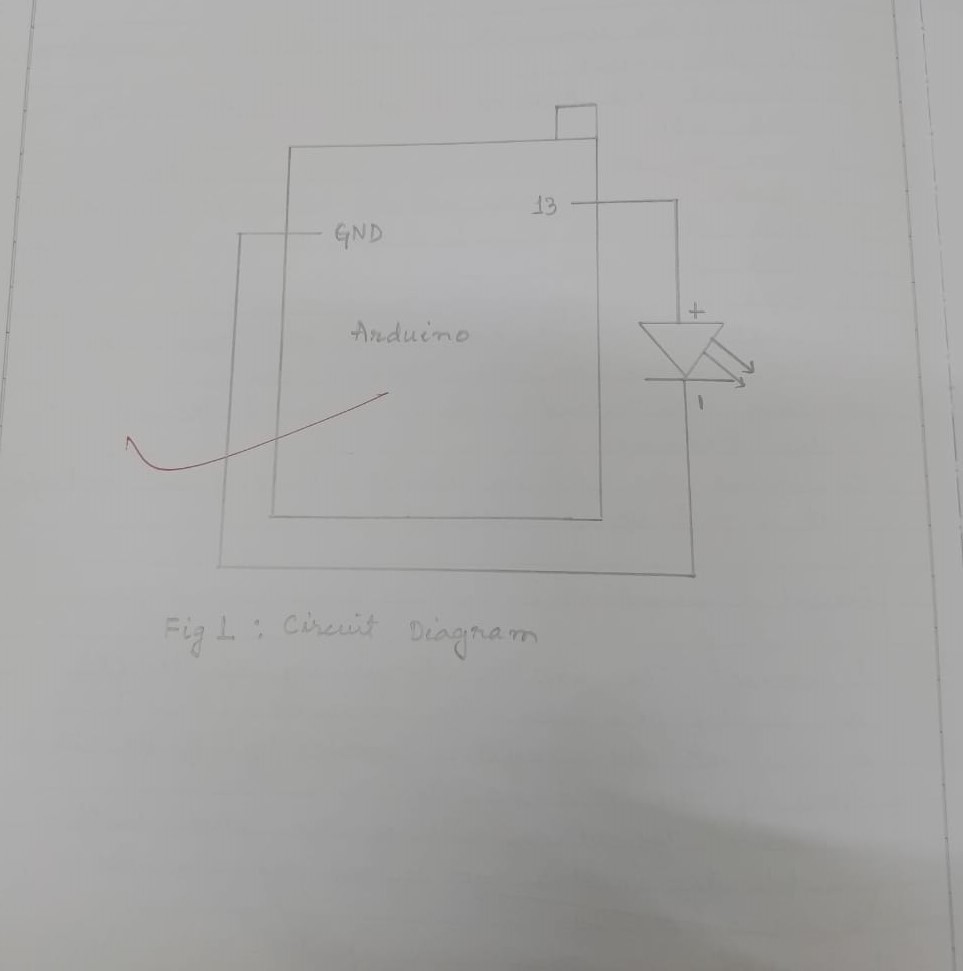 13
GND
Arduino
+
Fig 1 : Circuit Diagram